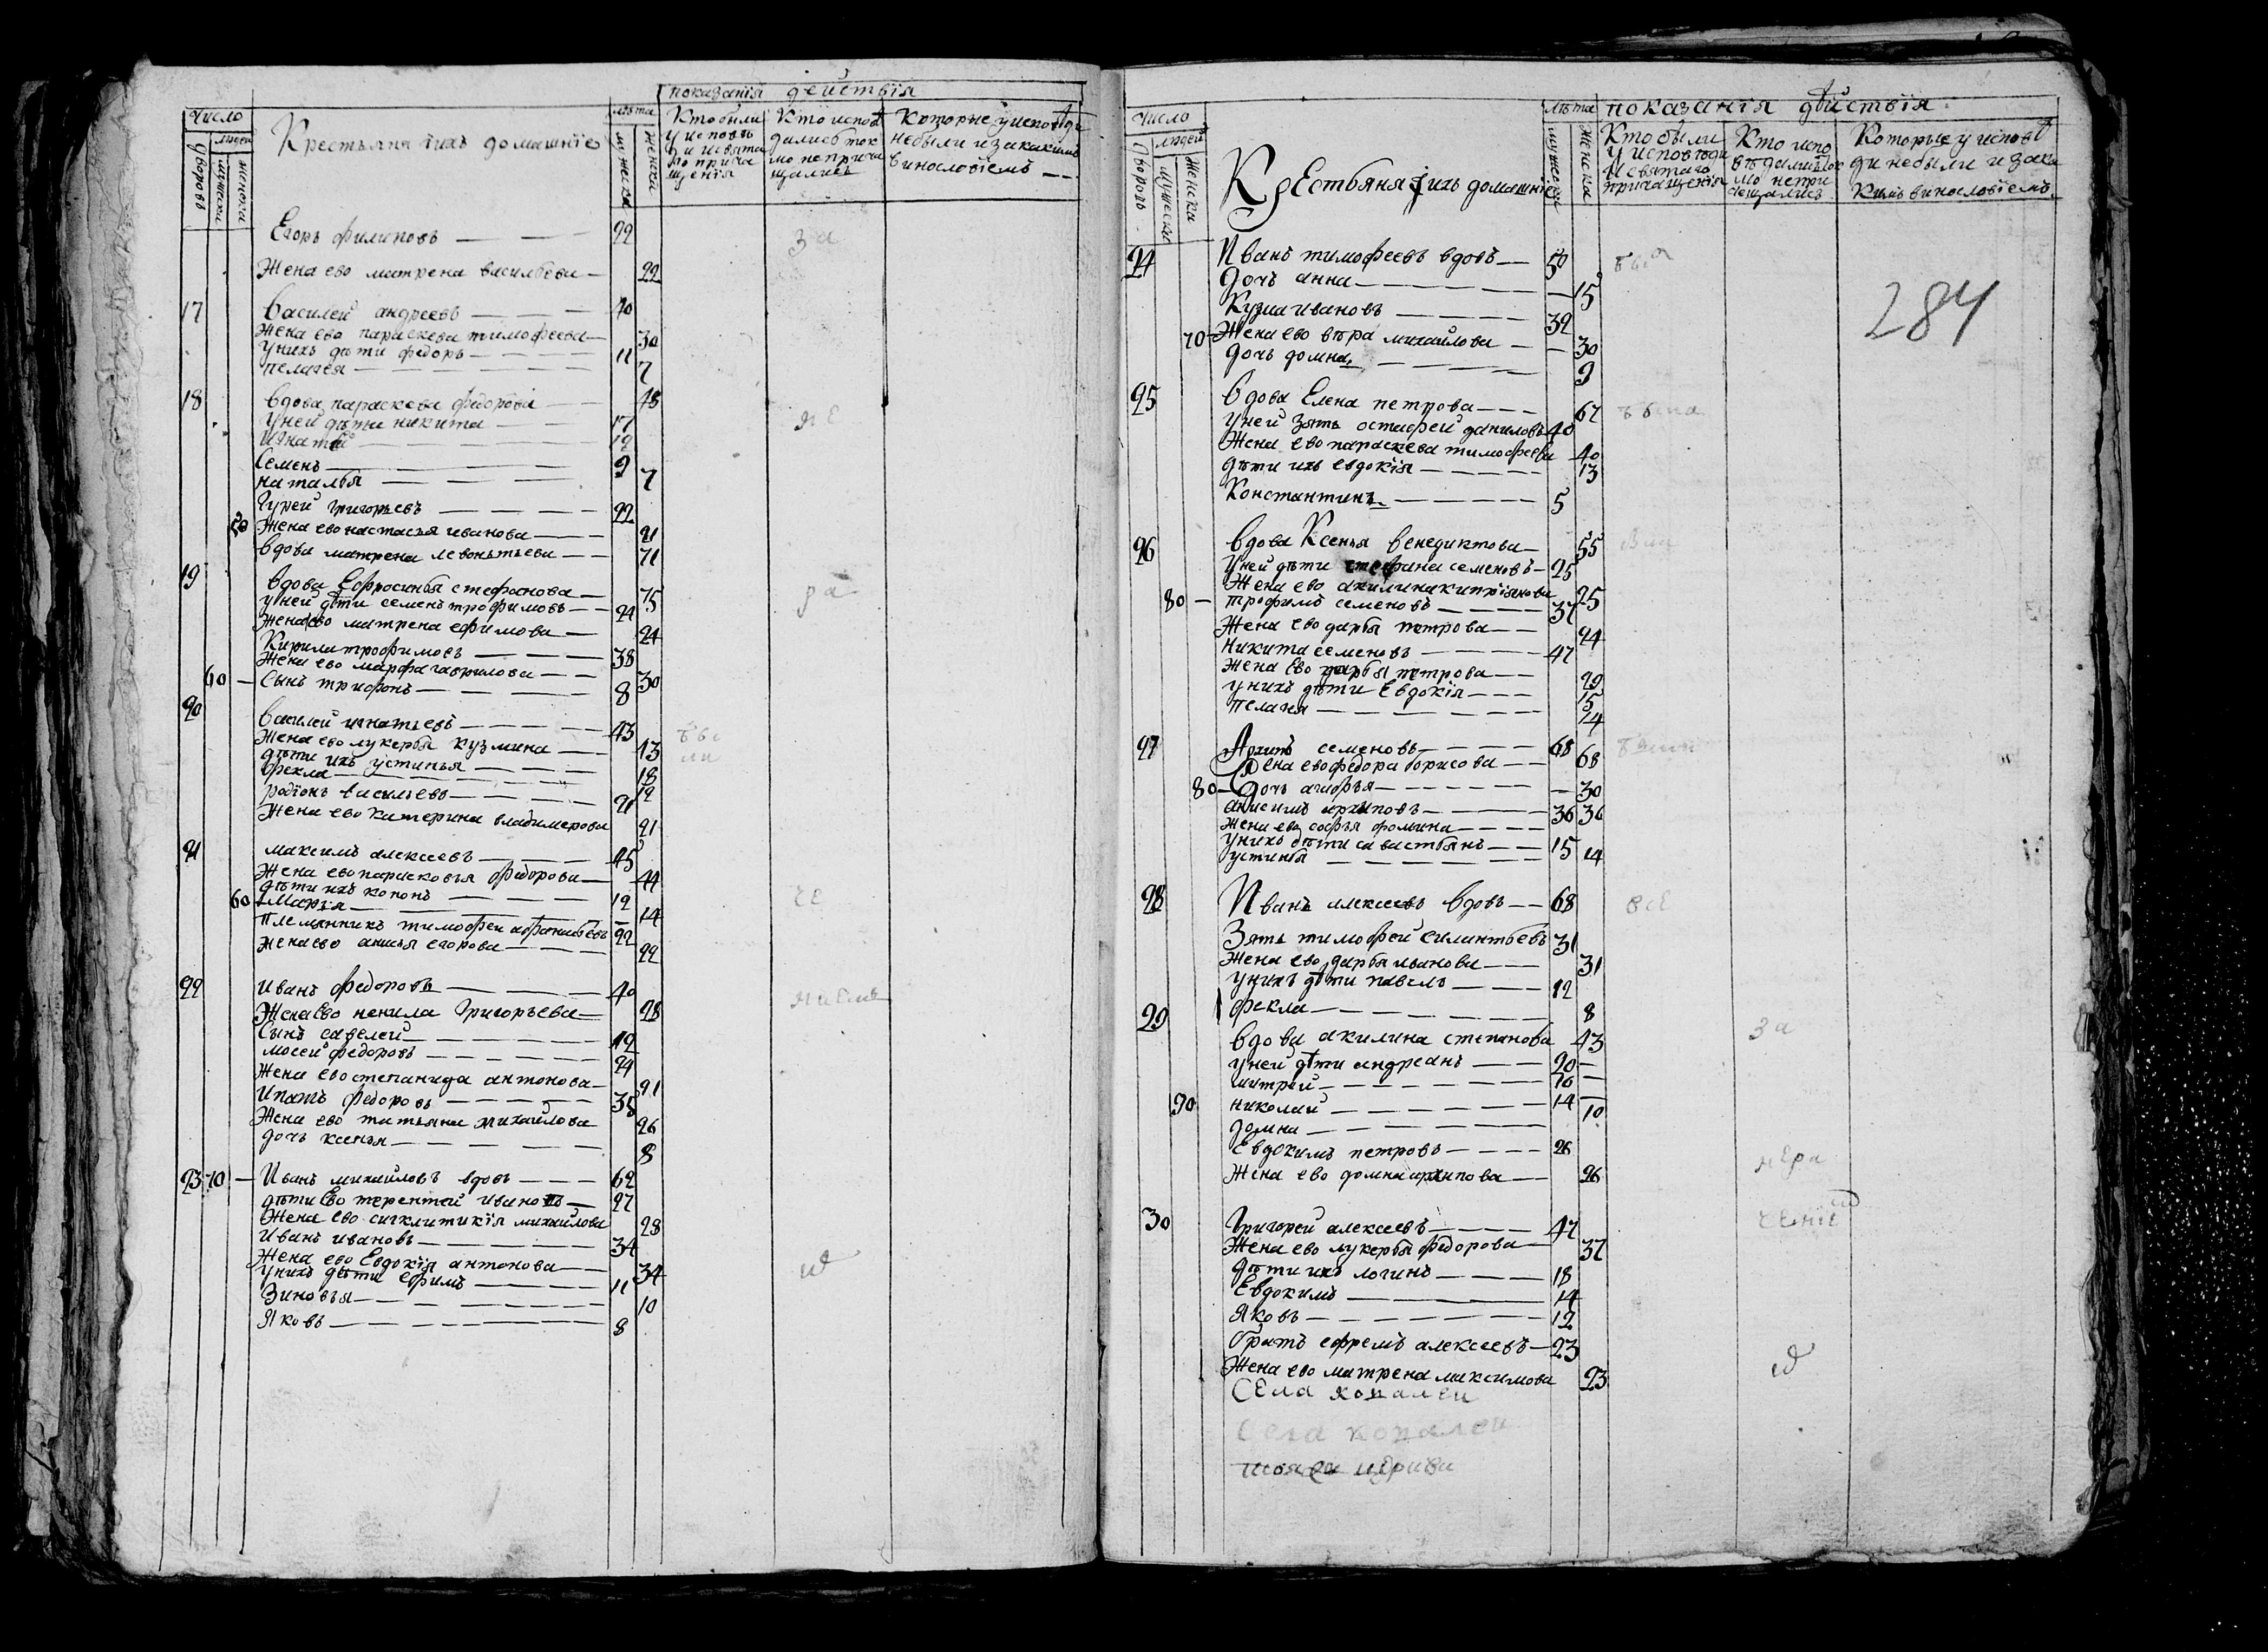 показанïя дѣйствïя
Число
людей
дворовъ
мужеска
женска
Крестьяня iихъ домашнïе
лѣта
мужеска
женска
Кто были
у исповѣ
ди исвята
го прича
щенïя
Кто испов
дались ток
мо неприча
щались
Которые уисповѣди
небыли изакакимъ
винословïемъ
Егоръ филиповъ 22 за
Жена ево матрена васильева 22
17 василей андреевъ 40
Жена ево параскева тимофеева 30
унихъ дѣти федоръ 11
пелагея 7
18 вдова параскева федорова 48 не
уней дѣти никита 17
Игнатей 12
Семенъ 9
наталья 7
Гурей григорьевъ 22
50 Жена ево настасья иванова 21
вдова матрена левонтьева 71
19 вдова Ефросинья стефанова 75 ра
уней дѣти семенъ трофимовъ 24
Жена ево матрена ефимова 24
Кирила трофимовъ 38
Жена ево марфа гаврилова 30
60 Сынъ трифонъ 8
20 Василей игнатьевъ 43
Жена ево лукерья кузмина 43
дѣти ихъ устинья 18
фекла 12
родïонъ васильевъ 21
Жена ево катерина владимерова 21
21 максимъ алексеевъ 45
Жена ево парасковья федорова 44
дѣти ихъ кононъ 12
60 Марья 14
племянникъ тимофеи афонасьевъ 22
жена ево анисья егорова 22
22 иванъ федоровъ 40
Жена Ево ненила Григорьева 28
Сынъ савелей 12
мосей федоровъ 24
Жена ево степанида антонова 21
Ипатъ федоровъ 38
Жена ево татьяна михайлова 26
дочь ксенья 8
23 70 Иванъ михаиловъ вдовъ 62
дѣти Ево терентей ивановъ 27
Жена ево сигклитикïя михаилова 28
Иванъ ивановъ 34
Жена ево Евдокïя антонова 34
унихъ дѣти ефимъ 11
Зиновья 10
Яковъ 8
Число
людей
дворовъ
мужеска
женска
КрЕстьяня iихъ домашнïе
лѣта
мужеска
женска
показанïя дѣйствïя
Кто были
у исповѣди
и святаго
причащенïя
Кто испо
вѣдались ток
мо непри
чащались
Которые у исповѣ
ди небыли и зака
кимъ винословïемъ
284
24 Иванъ тимофеевъ вдовъ 50
дочь анна 15
Кузма ивановъ 32
70 Жена ево вѣра михайлова 30
дочь домна 9
25 вдова Елена петрова 67
уней зять остафей даниловъ 40
Жена ево параскева тимофеева 40
дѣти ихъ евдокïя 13
Константинъ 5
26 вдова Ксенья венедиктова 55
уней дѣти стефана семеновъ 25
Жена ево акилина кипрïянова 25
80 трофимъ семеновъ 37
Жена ево дарья петрова 44
Никита семеновъ 47
жена Ево дарья петрова 29
унихъ дѣти Евдокïя 15
Пелагея 14
27 Архипъ семеновъ 68
Жена ево федора борисова 68
80 Дочь агафья 30
анисимъ архиповъ 36
жена ево софья фомина 36
унихъ дѣти савастьянъ 15
устинья 14
28 Иванъ алексеевъ вдовъ 68 все
Зять тимофей силинтьевъ 31
Жена ево дарья иванова 31
унихъ дѣти павелъ 12
фекла 8
29 вдова акилина степанова 43 за
уней дѣти андреанъ 20
митрей 16
90 николай 14
домна 10
Евдокимъ петровъ 26
Жена ево домна архипова 26 нера
30 Григорей алексеевъ 47
Жена ево лукерья федорова 37
дѣти ихъ логинъ 18
Евдокимъ 14
Яковъ 12
братъ ефремъ алексеевъ 23
Жена ево матрена максимова 23
Села копалеи
Села копалеи